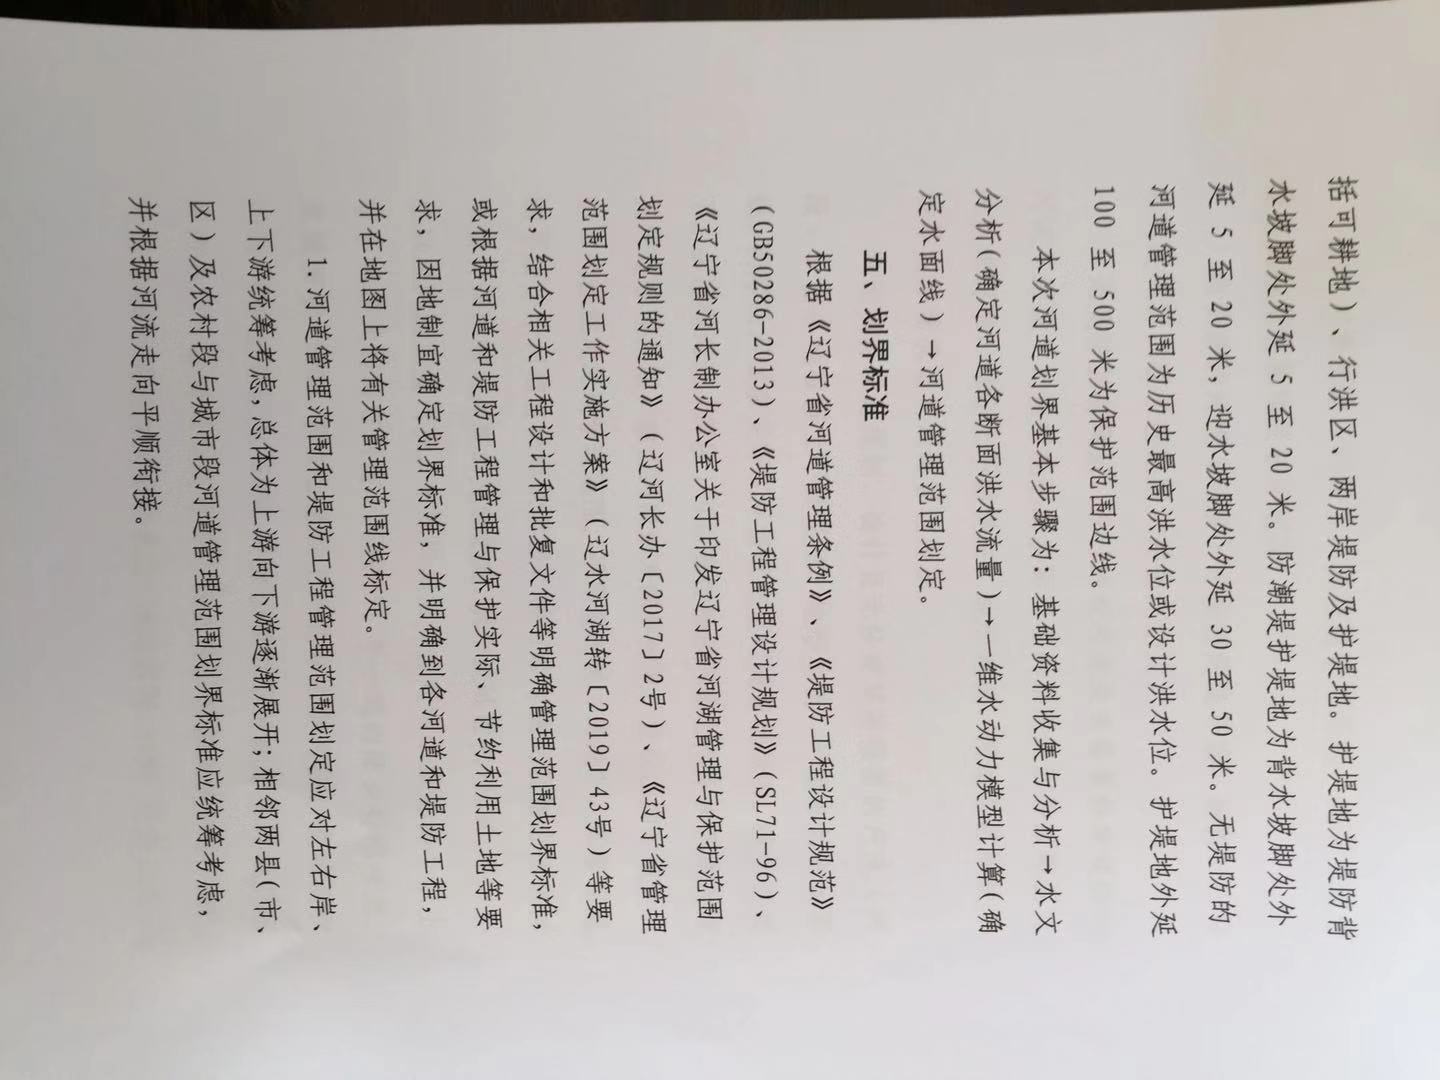 括可耕地）、行洪区、两岸堤防及护堤地。护堤地为堤防背
水坡脚处外延 5 至 20 米。防潮堤护堤地为背水坡脚处外
延 5 至 20 米，迎水坡脚处外延 30 至 50 米。无堤防的
河道管理范围为历史最高洪水位或设计洪水位。护堤地外延
100 至 500 米为保护范围边线。
本次河道划界基本步骤为：基础资料收集与分析→水文
分析（确定河道各断面洪水流量）→一维水动力模型计算（确
定水面线）→河道管理范围划定。
五、划界标准
根据《辽宁省河道管理条例》、《堤防工程设计规范》
（GB50286-2013）、《堤防工程管理设计规划》（SL71-96）、
《辽宁省河长制办公室关于印发辽宁省河湖管理与保护范围
划定规则的通知》（辽河长办〔2017〕2号）、《辽宁省管理
范围划定工作实施方案》（辽水河湖转〔2019〕43号）等要
求，结合相关工程设计和批复文件等明确管理范围划界标准，
或根据河道和堤防工程管理与保护实际、节约利用土地等要
求，因地制宜确定划界标准，并明确到各河道和堤防工程，
并在地图上将有关管理范围线标定。
1.河道管理范围和堤防工程管理范围划定应对左右岸、
上下游统筹考虑，总体为上游向下游逐渐展开；相邻两县（市、
区）及农村段与城市段河道管理范围划界标准应统筹考虑，
并根据河流走向平顺衔接。